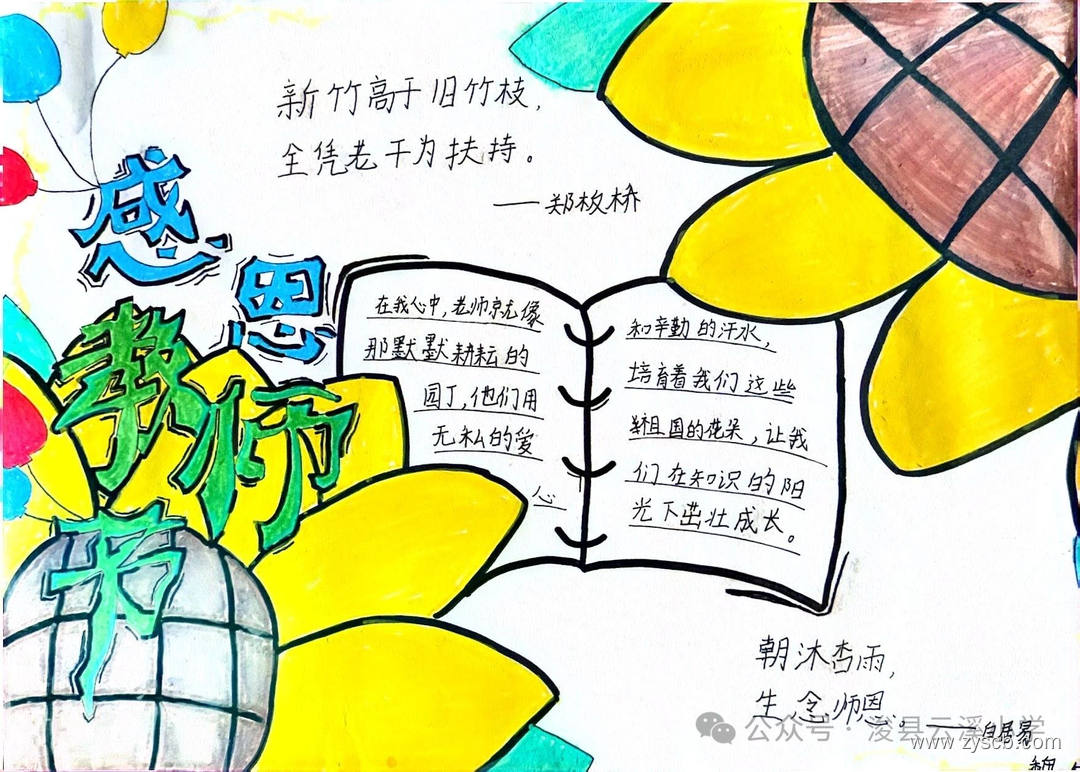 新竹高于旧竹枝，
全凭老干为扶持。
——郑板桥
感恩
教师
节
在我心中，老师就像
那默默耕耘的
园丁，他们用
无私的爱
心
和辛勤的汗水，
培育着我们这些
祖国的花朵，让我
们在知识的阳
光下茁壮成长。
朝沐杏雨，
生念师恩。——白居易
公众号·浚县云溪小学
www.zyscb.com